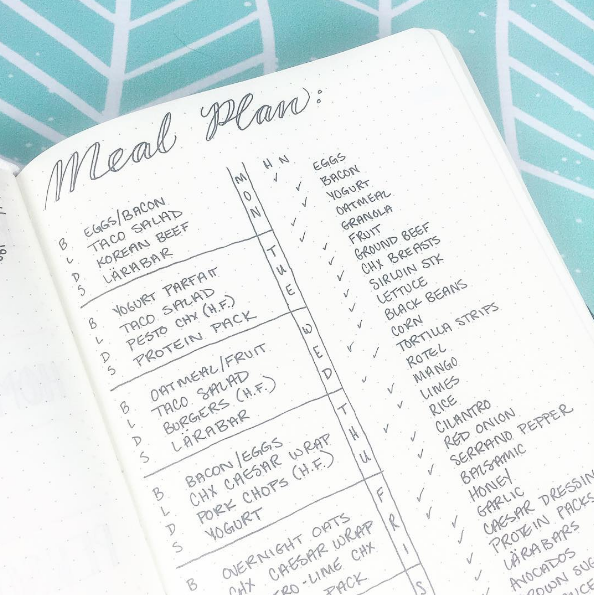 Meal Plan:
B EGGS/BACON
L TACO SALAD
D KOREAN BEEF
S LÄRABAR
MON
B YOGURT PARFAIT
L TACO SALAD
D PESTO CHX (H.F.)
S PROTEIN PACK
TUE
B OATMEAL/FRUIT
L TACO SALAD
D BURGERS (H.F.)
S LÄRABAR
WED
B BACON/EGGS
L CHX CAESAR WRAP
D PORK CHOPS (H.F.)
S YOGURT
THU
B OVERNIGHT OATS
CHX CAESAR WRAP
-LIME CHX
PACK
FRI
S
H N
EGGS
BACON
YOGURT
OATMEAL
GRANOLA
FRUIT
GROUND BEEF
CHX BREASTS
SIRLOIN STK
LETTUCE
BLACK BEANS
CORN
TORTILLA STRIPS
ROTEL
MANGO
LIMES
RICE
CILANTRO
RED ONION
SERRANO PEPPER
BALSAMIC
HONEY
GARLIC
CAESAR DRESSIN
PROTEIN PACKS
LÄRABARS
AVOCADOS